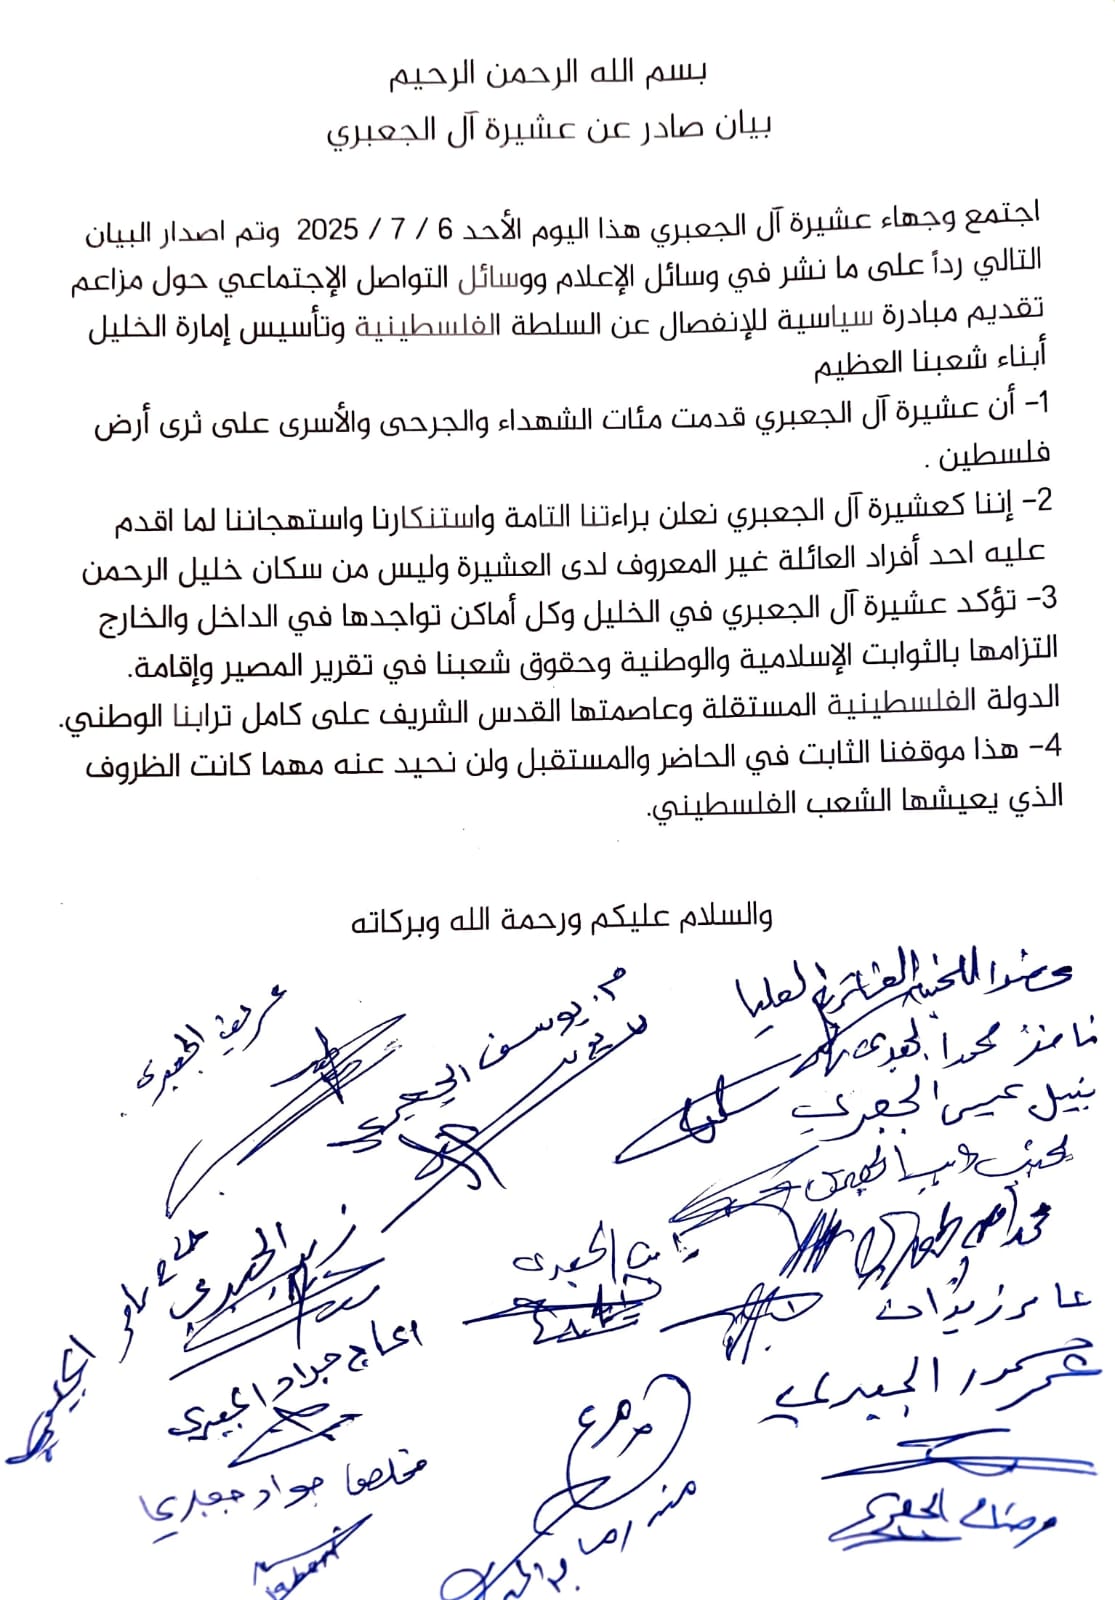 بسم الله الرحمن الرحيم
بيان صادر عن عشيرة آل الجعبري
اجتمع وجهاء عشيرة آل الجعبري هذا اليوم الأحد 6 / 7 / 2025 وتم اصدار البيان
التالي رداً على ما نشر في وسائل الإعلام ووسائل التواصل الإجتماعي حول مزاعم
تقديم مبادرة سياسية للإنفصال عن السلطة الفلسطينية وتأسيس إمارة الخليل
أبناء شعبنا العظيم
1- أن عشيرة آل الجعبري قدمت مئات الشهداء والجرحى والأسرى على ثرى أرض
فلسطين .
2- إننا كعشيرة آل الجعبري نعلن براءتنا التامة واستنكارنا واستهجاننا لما اقدم
عليه احد أفراد العائلة غير المعروف لدى العشيرة وليس من سكان خليل الرحمن
3- تؤكد عشيرة آل الجعبري في الخليل وكل أماكن تواجدها في الداخل والخارج
التزامها بالثوابت الإسلامية والوطنية وحقوق شعبنا في تقرير المصير وإقامة.
الدولة الفلسطينية المستقلة وعاصمتها القدس الشريف على كامل ترابنا الوطني.
4- هذا موقفنا الثابت في الحاضر والمستقبل ولن نحيد عنه مهما كانت الظروف
الذي يعيشها الشعب الفلسطيني.
والسلام عليكم ورحمة الله وبركاته
م. يوسف الجعبري
نبيل عيسى الجعبري
الجعبري
الحاج جواد الجعبري
الجعبري
جواد جعبري
الجعبري